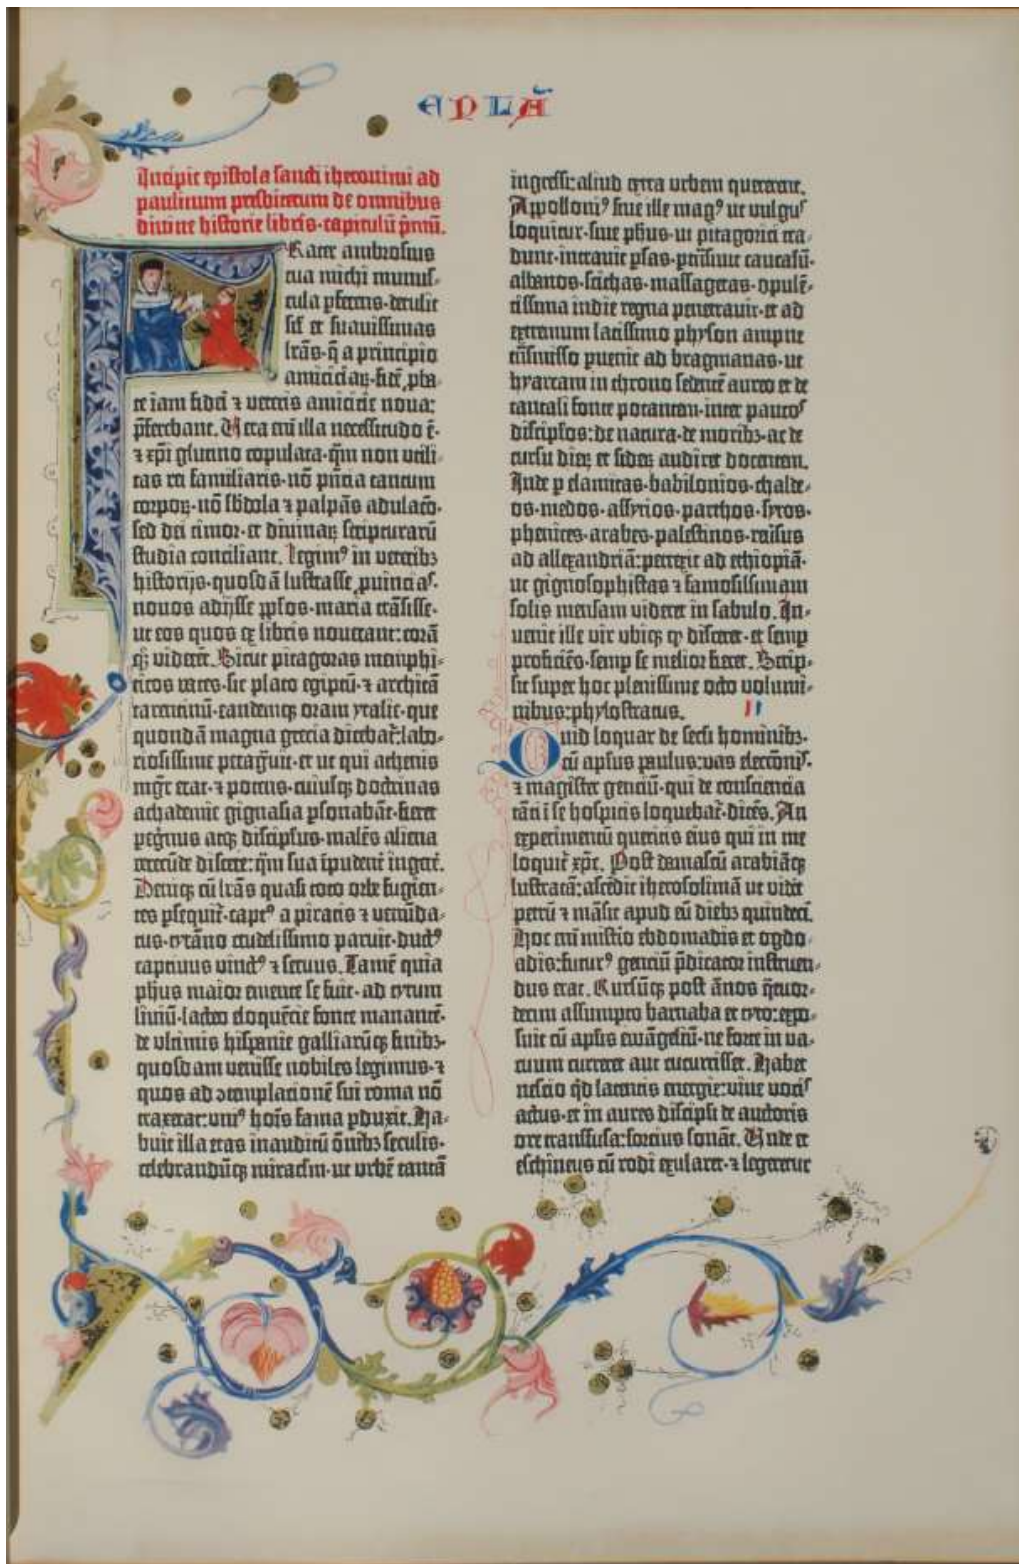 EPLĀ
Incipit epistola sancti iheronimi ad
paulinum presbiterum de omnibus
divine historie libris·capitulū p̄mū.
Frater ambrosius
tua michi munus-
cula pferens·detulit
sił et suavissimas
lrās·q̄ a principio
amiciciaꝝ·fidē pba-
te iam fidei ⁊ veteris amicicie nova:
p̄ferebant. Vera enī illa necessitudo ē·
⁊ xp̄i glutino copulata·q̄m non utili-
tas rei familiaris·nō pn̄cia tantum
corpoꝝ·nō sb̄dola ⁊ palpās adulacō·
sed dei timor·et divinaꝝ scripturarū
studia conciliant. Legimꝰ in veteribꝫ
historijs·quosdā lustrasse ꝓuincias·
novos adijsse pplos·maria trāsisse·
ut eos quos ex libris noverant: corā
qꝫ viderēt. Sicut pitagoras memphi-
ticos vates·sic plato egiptū·⁊ architā
tarentinū·eandemqꝫ oram ytalie·que
quondā magna grecia dicebat̄: labo-
riosissime peragravit·et ut qui athenis
mgr̄ erat·⁊ potens·cuiusqꝫ doctrinas
achademie gignasia psonabāt·fieret
pegrinus atqꝫ discipłus·malēs aliena
verecūde discere: q̄m sua īpudent̄ ingerē.
Deniqꝫ cū lrās quasi toto orbe fugien-
tes psequit̄·captꝰ a piratis ⁊ venūda-
tus·tyrāno crudelissimo paruit·ductꝰ
captivus vinctꝰ ⁊ servus. Tamē quia
phūs maior emente se fuit·ad tytum
liviū·lacteo eloquēcie fonte manantē·
de ultimis hispanie galliarūqꝫ finibꝫ·
quosdam venisse nobiles legimus·⁊
quos ad ꝯtemplacionē sui roma nō
traxerat: uniꝰ hoīs fama pduxit. Ha-
buit illa etas inauditū ōnibꝫ seculis·
celebrandūqꝫ miracłm·ut urbē tantā
ingressi: aliud extra urbem quererent.
Appolloniꝰ sive ille magꝰ ut vulgus
loquitur·sive phūs·ut pitagorici tra-
dunt·intravit psas·ptrāsivit caucasū·
albanos·scithas·massagetas·opulē-
tissima indie regna penetravit·et ad
extremum latissimo physon ampne
trāsmisso puenit ad bragmanas·ut
hyarcam in throno sedentē aureo et de
tantali fonte potantem·inter paucos
discipłos: de natura·de moribꝫ·ac de
cursu dieꝝ et sideꝝ audiret docentem.
Inde p elamitas·babilonios·chalde-
os·medos·assyrios·parthos·syros·
phenices·arabes·palestinos·reversus
ad allexandriā: perrexit ad ethiopiā·
ut gignosophistas ⁊ famosissimam
solis mensam videret in sabulo. In-
venit ille vir ubiqꝫ qđ disceret·et semp
proficiēs·semp se melior fieret. Scrip-
sit super hoc plenissime octo volumi-
nibus: phylostratus. II
Quid loquar de secli hominibꝫ·
cū apłus paulus: vas electōnis·
⁊ magister genciū·qui de consciencia
tāti ī se hospitis loquebat̄·dicēs. An
experimentū queritis eius qui in me
loquit̄ xp̄c. Post damascū arabiāqꝫ
lustratā: ascēdit iherosolimā ut vidēt
petrū ⁊ māsit apud eū diebꝫ quindecī.
Hoc enī misterio ebdomadis et ogdo-
adis: futurꝰ genciū p̄dicator instruen-
dus erat. Rursūqꝫ post ānos q̄tuor-
decim assumpto barnaba et tyto: expo-
suit cū apłis ewāgeliū·ne forte in va-
cuum curreret aut cucurrisset. Habet
nescio qđ latentis energie: vive vocis
actus·et in aures discipłi de auctoris
ore transfusa: forcius sonāt. Unde et
eschineus cū rodi exularet·⁊ legeretur